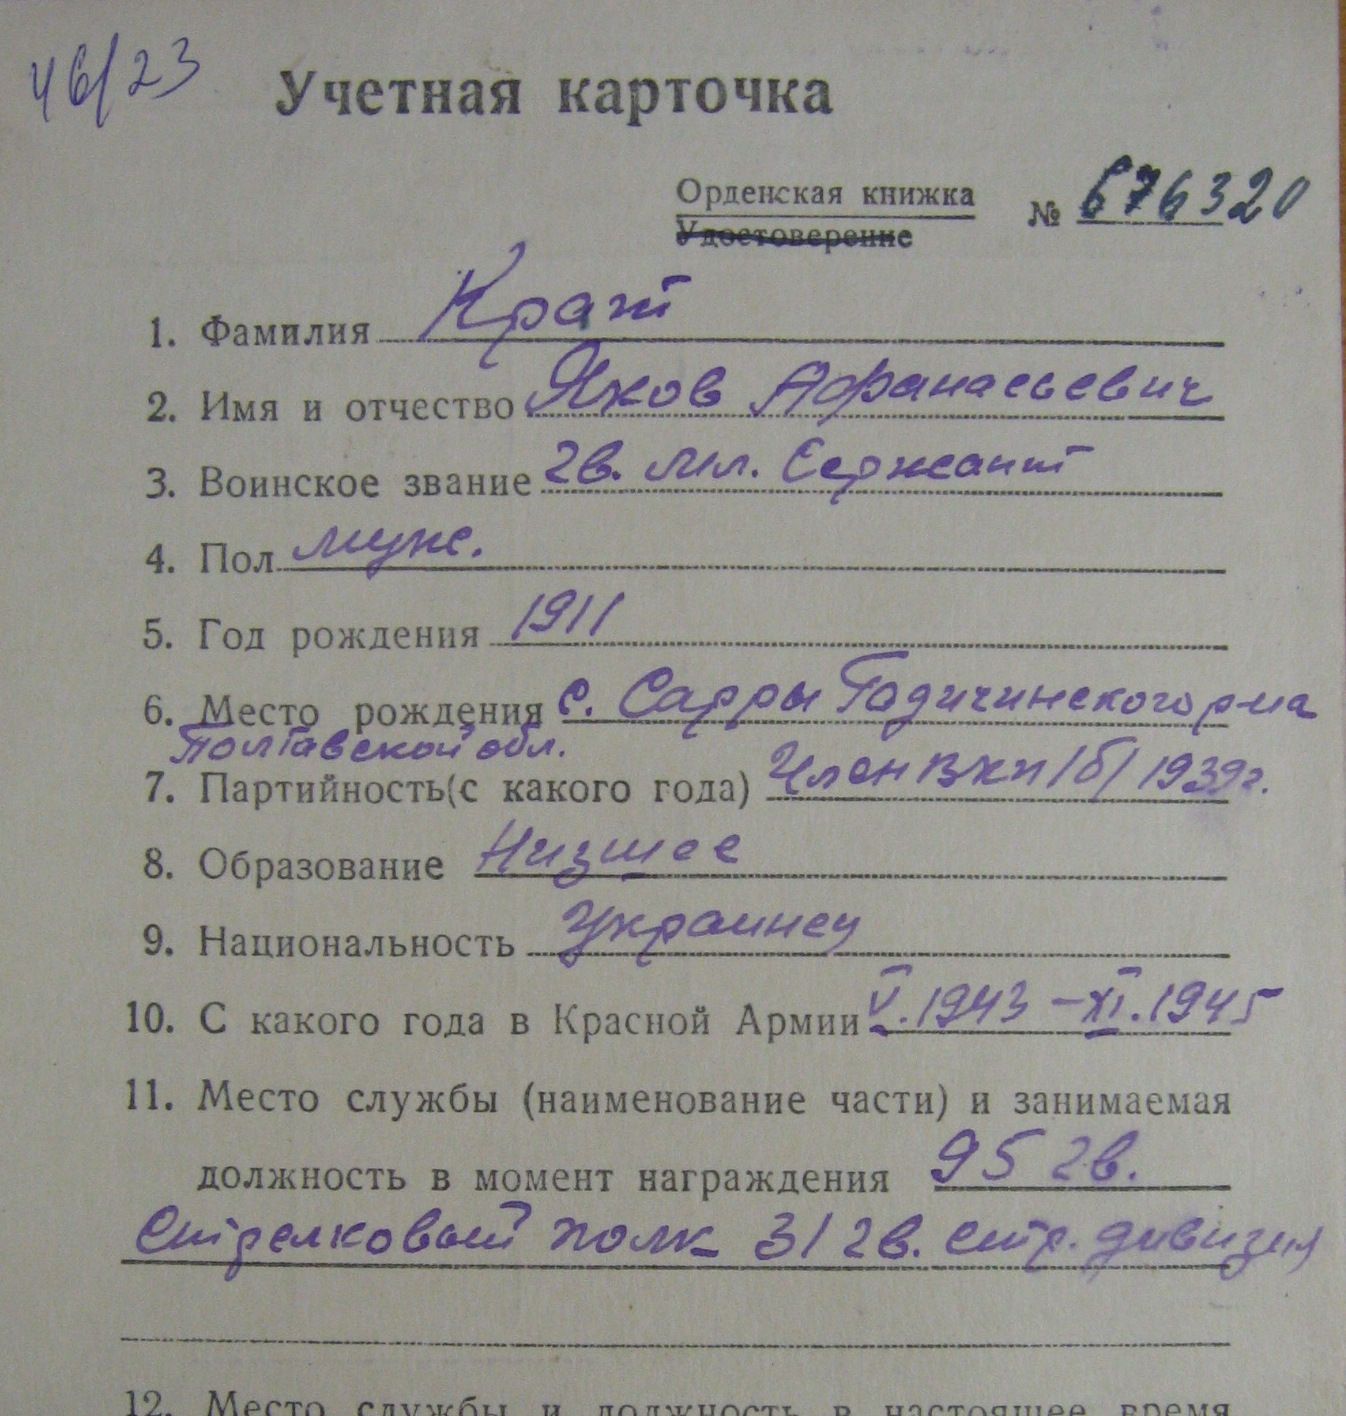 46/23
Учетная карточка
Орденская книжка № 676320
Удостоверение
1. Фамилия Крат
2. Имя и отчество Яков Афанасьевич
3. Воинское звание гв. мл. Сержант
4. Пол муж.
5. Год рождения 1911
6. Место рождения с. Сарры Гадичинского р-на
Полтавской обл.
7. Партийность(с какого года) Член ВКП/б/ 1939г.
8. Образование Низшее
9. Национальность Украинец
10. С какого года в Красной Армии V.1943 – XI.1945
11. Место службы (наименование части) и занимаемая
должность в момент награждения 95 гв.
Стрелковый полк 31 гв. стр. дивизия
12. Место службы и должность в настоящее время